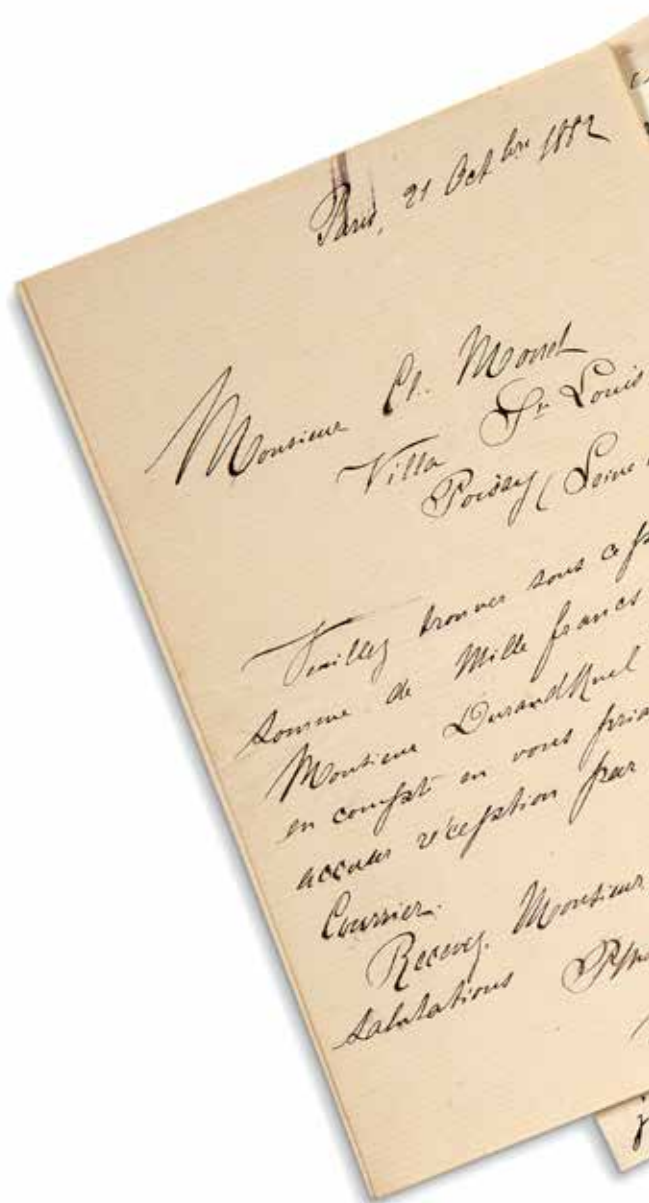 Paris, 21 Octbre 1882
Monsieur Cl. Monet
Villa St. Louis
Poissy (Seine
Veuillez trouver sous ce p
somme de Mille francs
Monsieur DurandRuel
en compte en vous pria
accuser réception par
Courrier.
Recevez, Monsieur
salutations